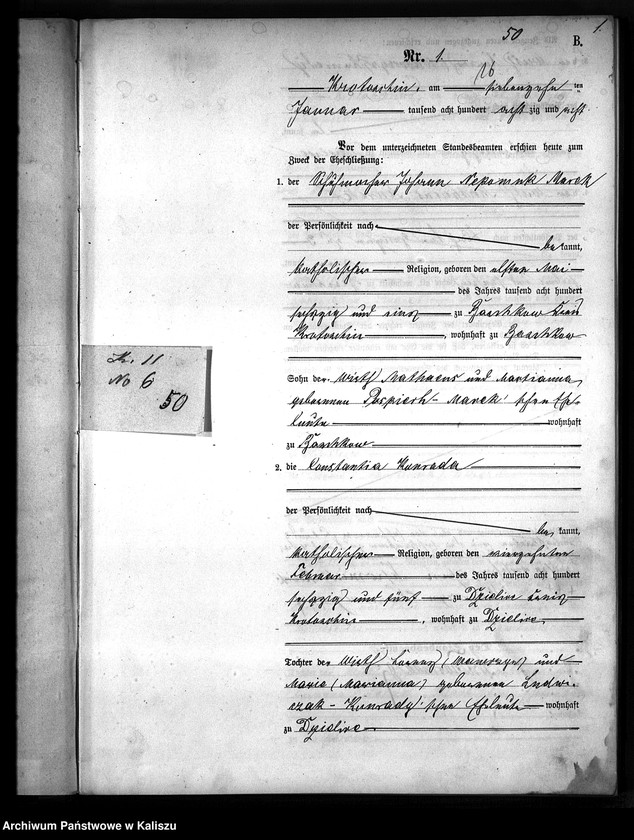 50
1.
B.
Nr. 1.
Krotoschin, am siebenzehn ten
Januar tausend acht hundert acht zig und acht
Vor dem unterzeichneten Standesbeamten erschien heute zum
Zweck der Eheschließung:
1. der Schuhmacher Johann Nepomuk Marek
der Persönlichkeit nach
be kannt,
katholischer Religion, geboren den elften Mai
des Jahres tausend acht hundert
sechzig und eins zu Baschkow Kreis
Krotoschin, wohnhaft zu Baschkow
Kr. 11
No 6
50
Sohn der Wirth Mathaeus und Marianna,
geborenen Pospiech- Marek' schen Ehe-
leute wohnhaft
zu Baschkow
2. die Constantia Konrada
der Persönlichkeit nach
be kannt,
katholischer Religion, geboren den vierzehnten
Februar des Jahres tausend acht hundert
sechzig und fünf zu Dzielice Kreis
Krotoschin, wohnhaft zu Dzielice,
Tochter der Wirth Lorenz (Wawrzyn) und
Maria (Marianna) geborenen Ludwi-
czak - Konrady' schen Eheleute wohnhaft
zu Dzielice
Archiwum Państwowe w Kaliszu